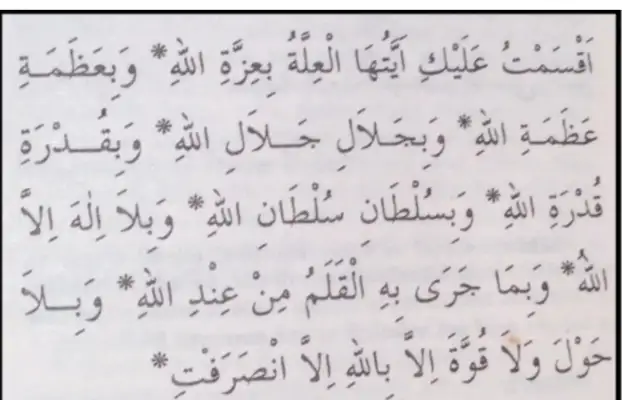 اَقْسَمْتُ عَلَيْكِ اَيَّتُهَا الْعِلَّةُ بِعِزَّةِ اللهِ * وَبِعَظَمَـةِ
عَظَمَـةِ اللهِ * وَبِجَلاَلِ جَـــلاَلِ اللهِ * وَبِقُـــدْرَةِ
قُدْرَةِ اللهِ * وَبِسُلْطَانِ سُلْطَانِ اللهِ * وَبِلاَ اِلٰهَ اِلاَّ
اللهُ * وَبِمَا جَرَى بِهِ الْقَلَمُ مِنْ عِنْدِ اللهِ * وَبِـــلاَ
حَوْلَ وَلاَ قُوَّةَ اِلاَّ بِاللهِ اِلاَّ انْصَرَفْتِ *